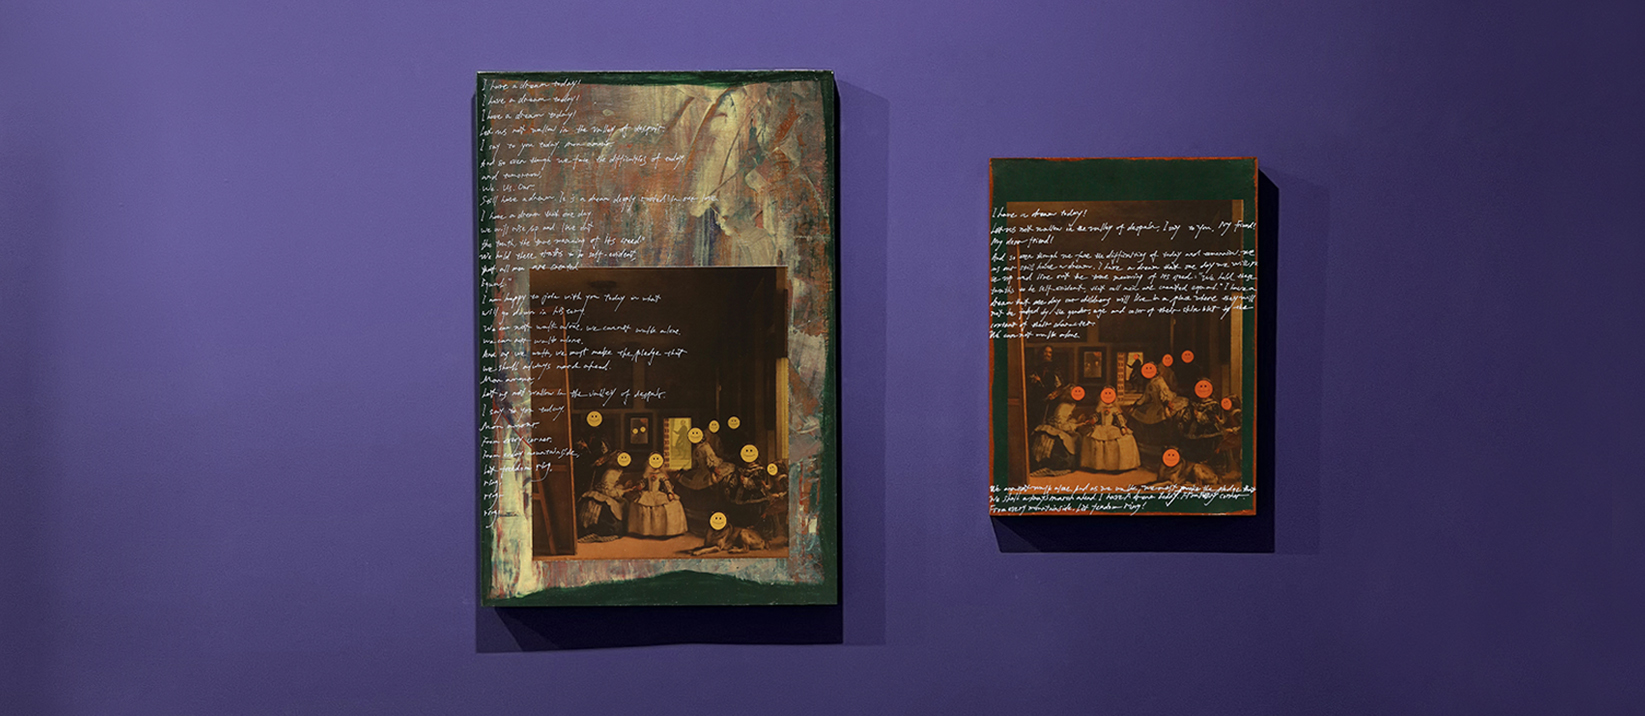 I have a dream today!
I have a dream today!
I have a dream today!
Let us not wallow in the valley of despair.
I say to you today,
And so even though we face the difficulties of today
and tomorrow,
We. Us. Our.
Still have a dream. It is a dream deeply rooted in our
I have a dream that one day
we will rise up and live out
the truth the true meaning of its creed"
We hold these truths to be self-evident,
that all men are created
Equal."
I am happy to join with you today in what
will go down in history.
We can not walk alone, we cannot walk alone.
we can not walk alone.
And as we walk, we must make the pledge that
we shall always march ahead.
Mon amour!
Let us not wallow in the valley of despair.
I say to you today,
Mon amour
From every corner,
From every mountainside,
Let freedom ring,
ring
ring
ring
I have a dream today!
Let us not wallow in the valley of despair, I say to you, My friend!
My dear friend!
And so even though we face the difficulties of today and tomorrow, we
as our still have a dream. I have a dream that one day we will
rise up and live out the true meaning of its creed: "We hold these
truths to be self-evident, that all men are created equal." I have a
dream that one day our children will live in a place where they will
not be judged by the gender, age and color of their skin but by the
content of their character.
We can not walk alone.
We can not walk alone. And as we walk, we must make the pledge that
We shall always march ahead. I have A dream today, from every corner
From every mountainside. Let freedom ring!